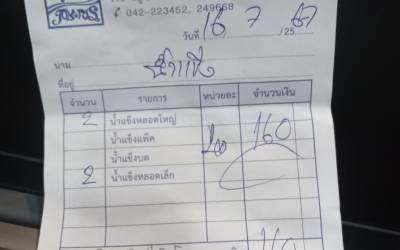 ✆ 042-223452, 249668
วันที่ 16 / 7 / 2567
นาม น้ำแข็ง
ที่อยู่
จำนวน รายการ หน่วยละ จำนวนเงิน
2 น้ำแข็งหลอดใหญ่ 160
น้ำแข็งแพ็ค 40
น้ำแข็งบด
2 น้ำแข็งหลอดเล็ก
160